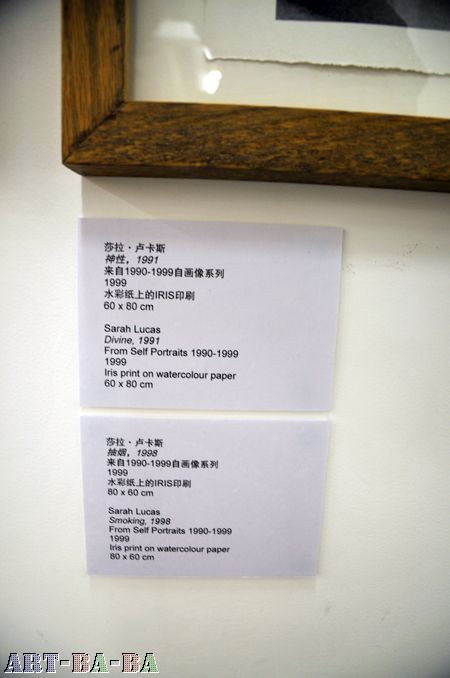 莎拉・卢卡斯
神性，1991
来自1990-1999自画像系列
1999
水彩纸上的IRIS印刷
60 x 80 cm
Sarah Lucas
Divine, 1991
From Self Portraits 1990-1999
1999
Iris print on watercolour paper
60 x 80 cm
莎拉・卢卡斯
抽烟，1998
来自1990-1999自画像系列
1999
水彩纸上的IRIS印刷
80 x 60 cm
Sarah Lucas
Smoking, 1998
From Self Portraits 1990-1999
1999
Iris print on watercolour paper
80 x 60 cm
ART-BA-BA